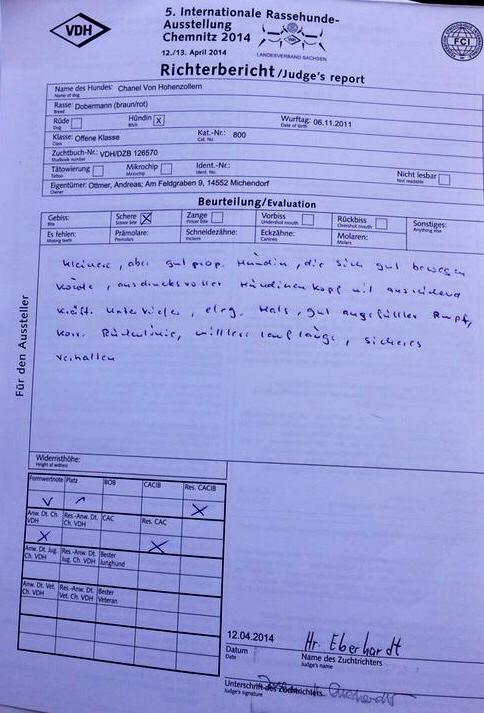 VDH
5. Internationale Rassehunde-
Ausstellung
Chemnitz 2014
12./13. April 2014
LANDESVERBAND SACHSEN
FCI
Richterbericht/Judge's report
Name des Hundes: Chanel Von Hohenzollern
Name of dog
Rasse: Dobermann (braun/rot)
Breed
Rüde Hündin X Wurftag: 06.11.2011
Dog Bitch Date of birth
Klasse: Offene Klasse Kat.-Nr.: 800
Class Cat. No.
Zuchtbuch-Nr.: VDH/DZB 126570
Studbook number
Tätowierung Mikrochip Ident.-Nr.: Nicht lesbar
Tattoo Microchip Ident. No. Not readable
Eigentümer: Ottmer, Andreas; Am Feldgraben 9, 14552 Michendorf
Owner
Beurteilung/Evaluation
Gebiss: Schere X Zange Vorbiss Rückbiss Sonstiges:
Bite Scissor bite Pincer bite Undershot mouth Overshot mouth Anything else
Es fehlen: Prämolare: Schneidezähne: Eckzähne: Molaren:
Missing teeth Premolars Incisors Canines Molars
Kleinere, aber gut prop. Hündin, die sich gut bewegen
könnte, ausdrucksvoller Hündinen Kopf mit ausreichend
kräft. Unterkiefer, eleg. Hals, gut ausgefüllter Rumpf,
korr. Rückenlinie, mittlere lauflänge, sicheres
verhalten
Für den Aussteller
Widerristhöhe:
Height at withers
Formwertnote Platz BOB CACIB Res. CACIB
V 1 X
Anw. Dt. Ch. VDH Res.-Anw. Dt. Ch. VDH CAC Res. CAC
X X
Anw. Dt. Jug. Ch. VDH Res.-Anw. Dt. Jug. Ch. VDH Bester Junghund
Anw. Dt. Vet. Ch. VDH Res.-Anw. Dt. Vet. Ch. VDH Bester Veteran
12.04.2014 Hr. Eberhardt
Datum Name des Zuchtrichters
Date Judge's name
Unterschrift des Zuchtrichters
Judge's signature